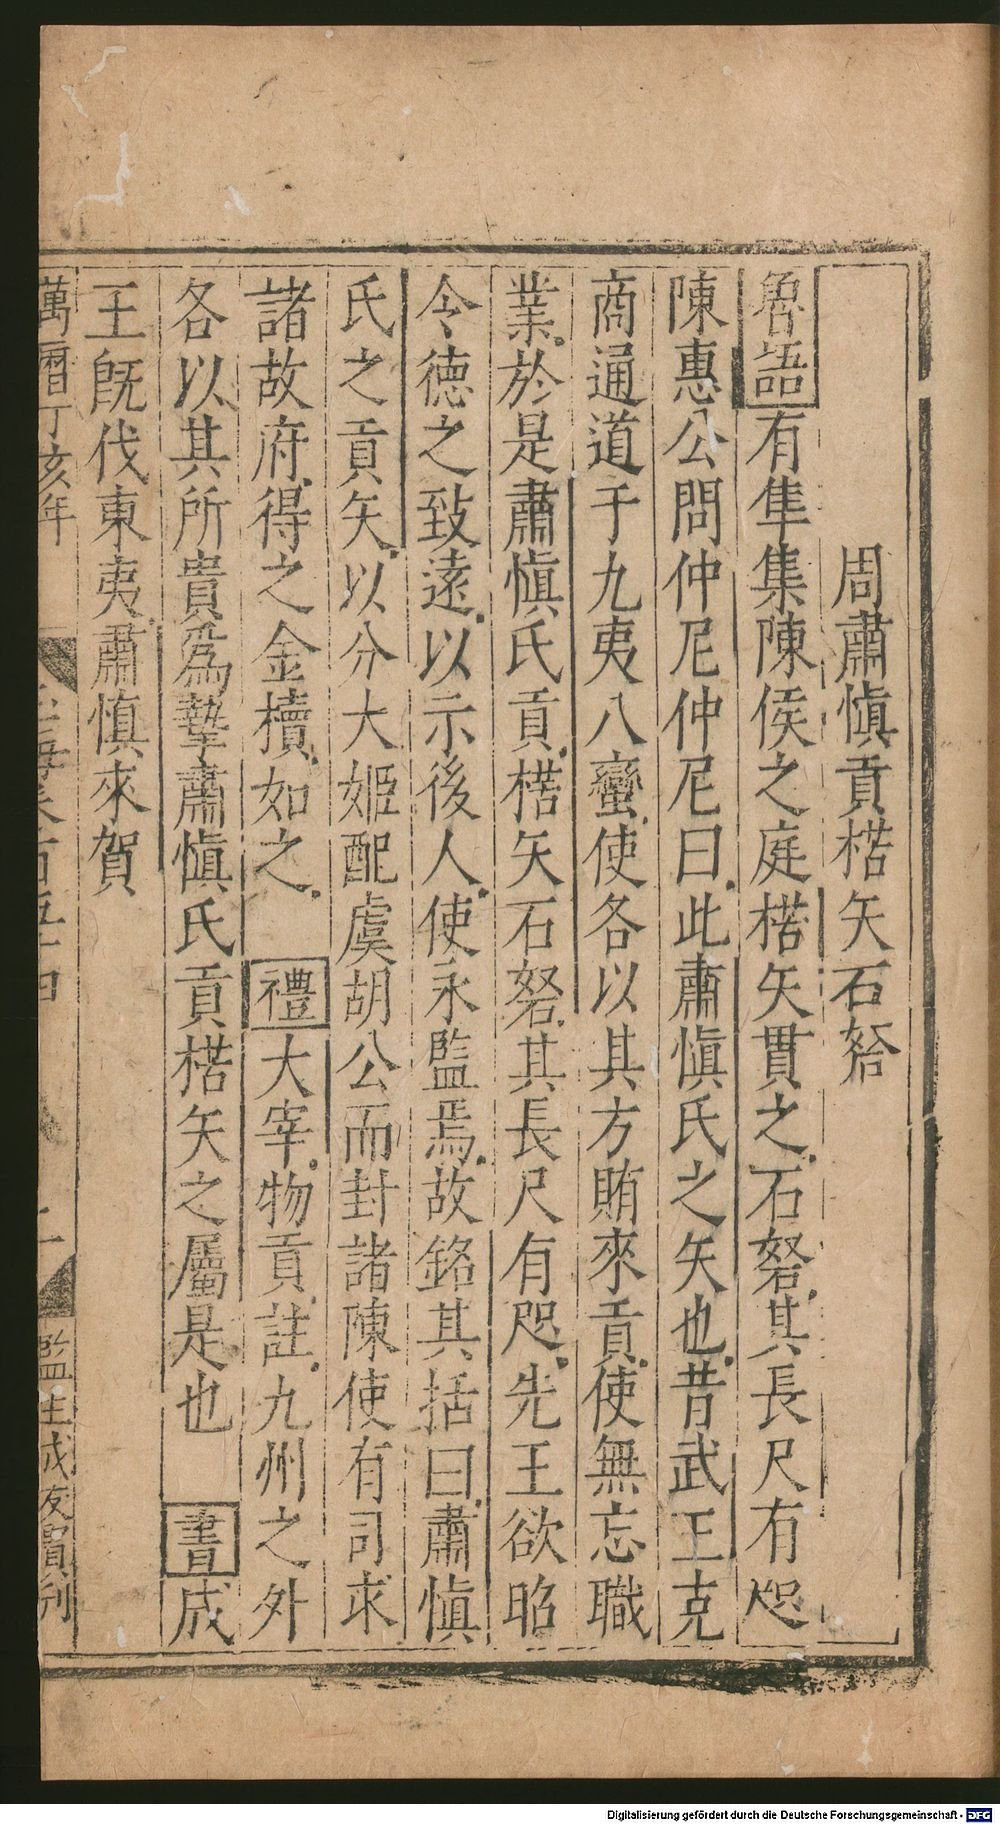 周肅慎貢楛矢石砮
魯語有隼集陳侯之庭楛矢貫之石砮其長尺有咫
陳惠公問仲尼仲尼曰此肅慎氏之矢也昔武王克
商通道于九夷八蠻使各以其方賄來貢使無忘職
業於是肅慎氏貢楛矢石砮其長尺有咫先王欲昭
令德之致遠以示後人使永監焉故銘其括曰肅慎
氏之貢矢以分大姬配虞胡公而封諸陳使有司求
諸故府得之金櫝如之 禮大宰物貢註九州之外
各以其所貴為摯肅慎氏貢楛矢之屬是也 書成
王既伐東夷肅慎來賀
萬曆丁亥年 海卷百五十四 二 監生成友賓刊
Digitalisierung gefördert durch die Deutsche Forschungsgemeinschaft - DFG